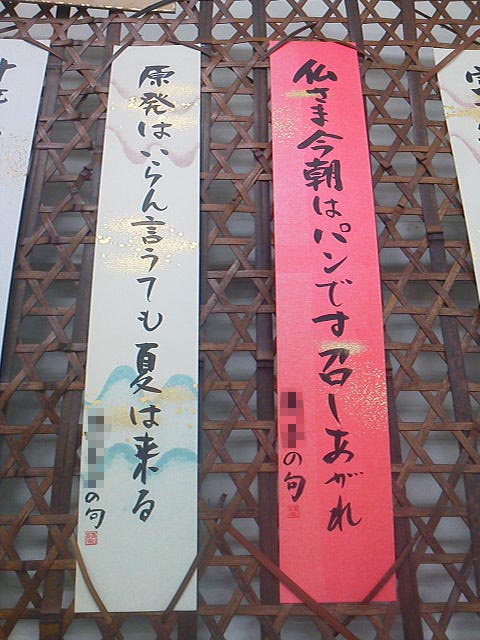 仏さま今朝はパンです召しあがれ
の句
原発はいらん言うても夏は来る
の句